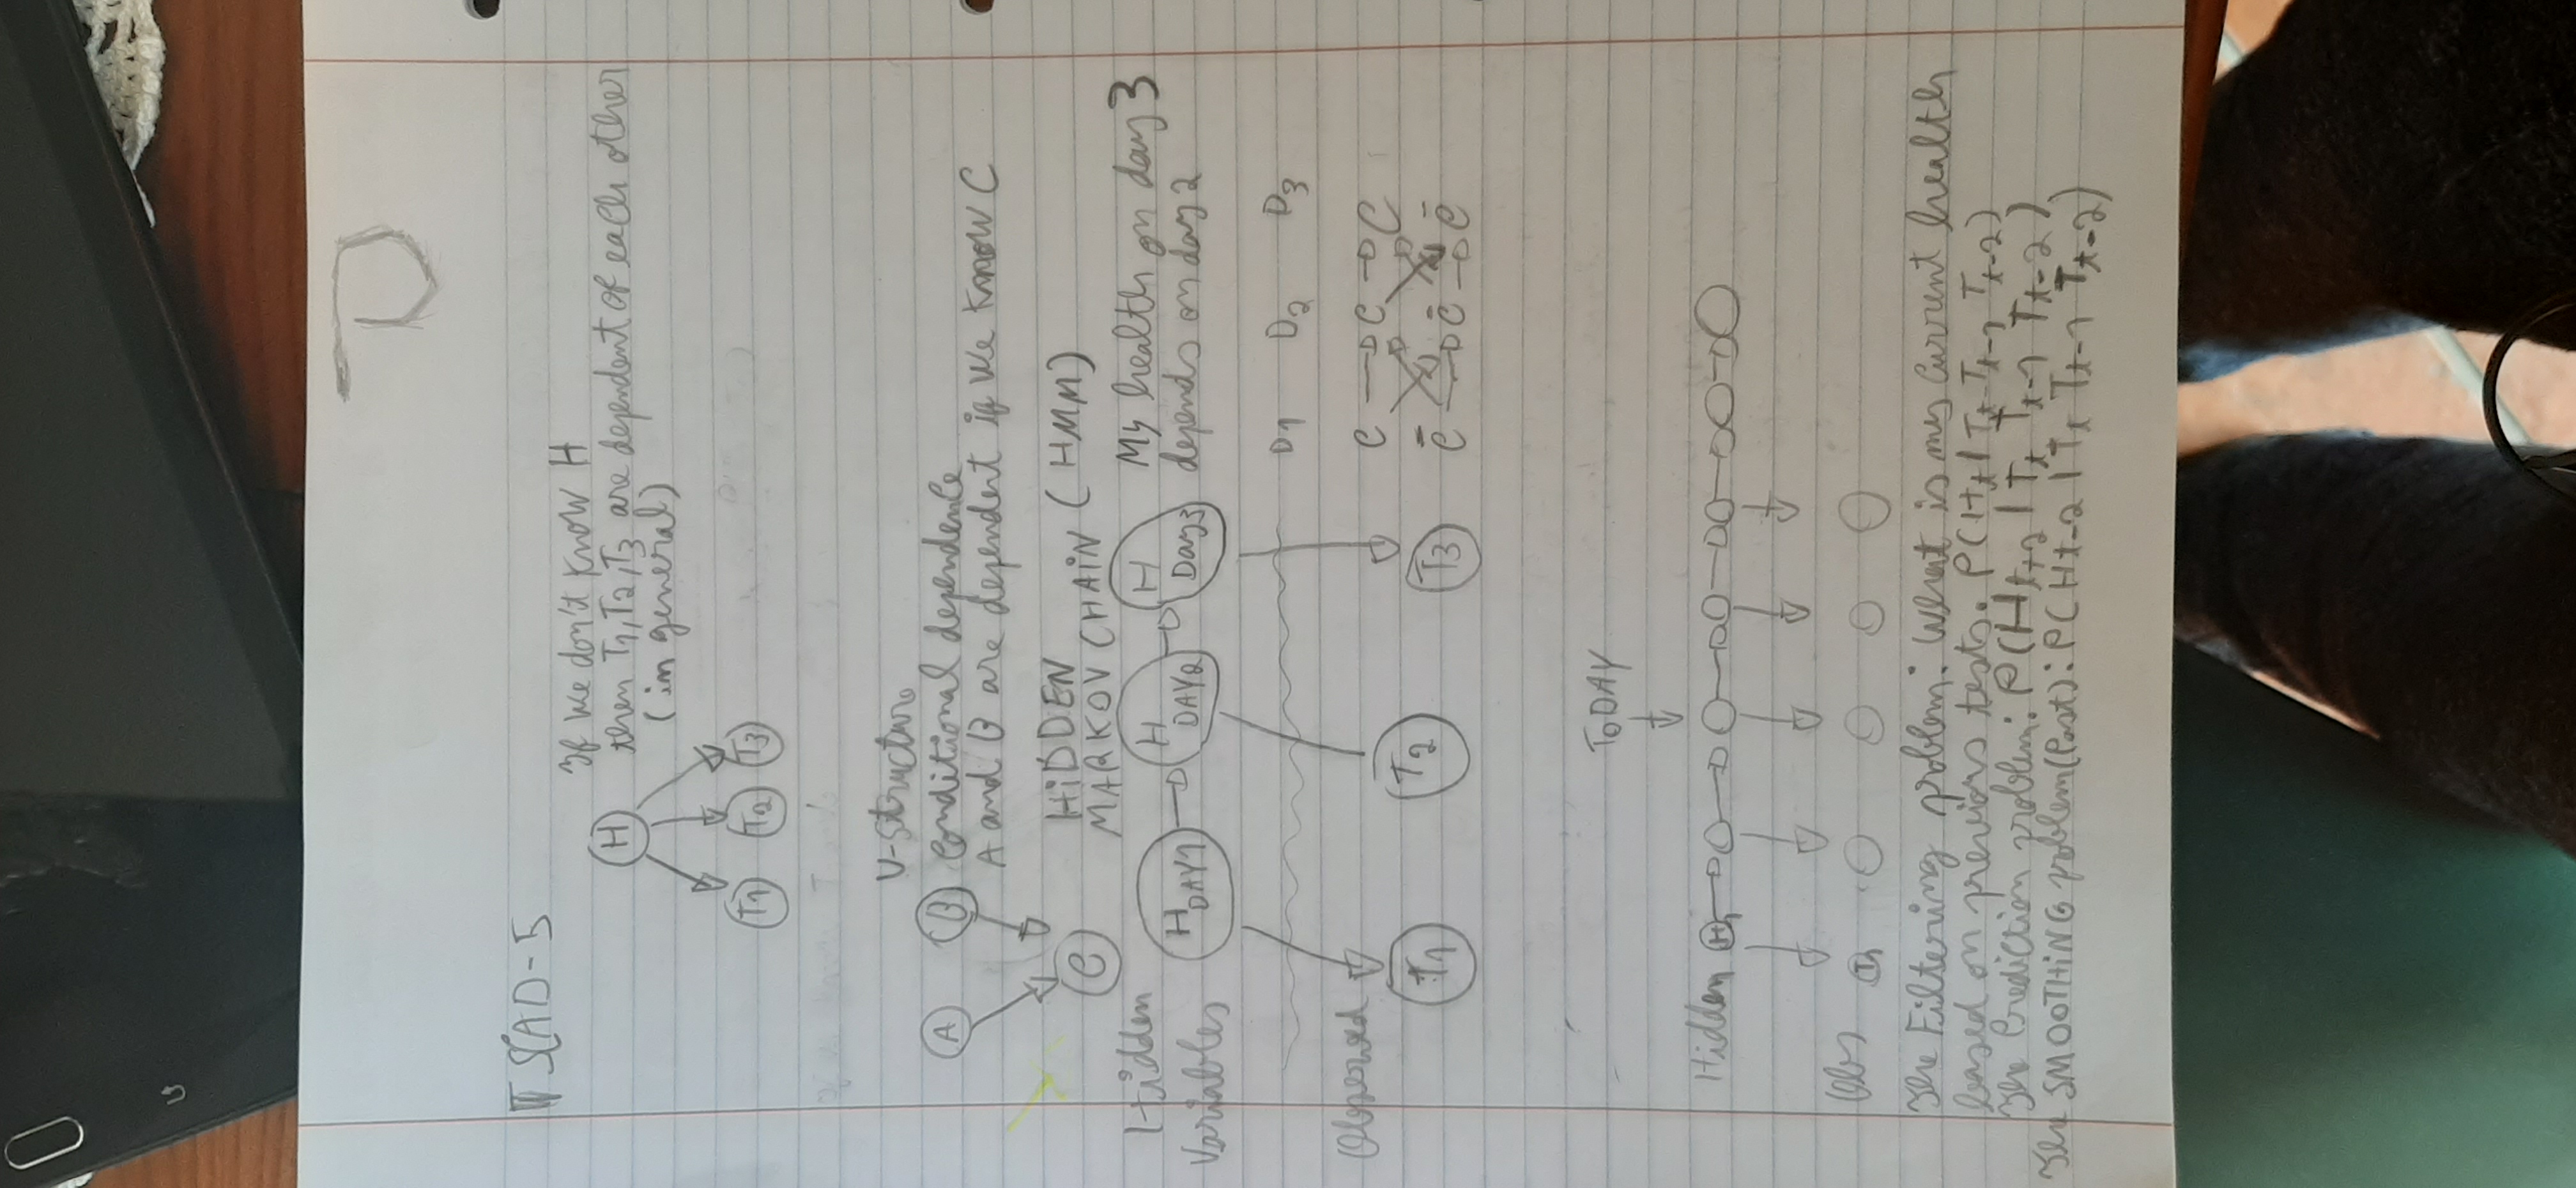 TSCAD-5
If we don't know H
H then T1, T2, T3 are dependent of each other
(in general)
T1 T2 T3
V-structure
A B Conditional dependence
A and B are dependent if we know C
C HiDDEN
MARKOV CHAiN (HMM)
Hidden Variables
H DAY1 H DAY2 H Day3
My health on day 3
depends on day 2
D1 D2 D3
Observed
C C C
T1 T2 T3
C̄ C̄ C̄
ToDAY
Hidden H1
Obs T1
The Filtering problem: What is my current health
based on previous tests. P(Ht | Tt Tt-1 Tt-2)
The Prediction problem: P(Ht+2 | Tt Tt-1 Tt-2)
The SMOOTHiNG problem(Past): P(Ht-2 | Tt Tt-1 Tt-2)